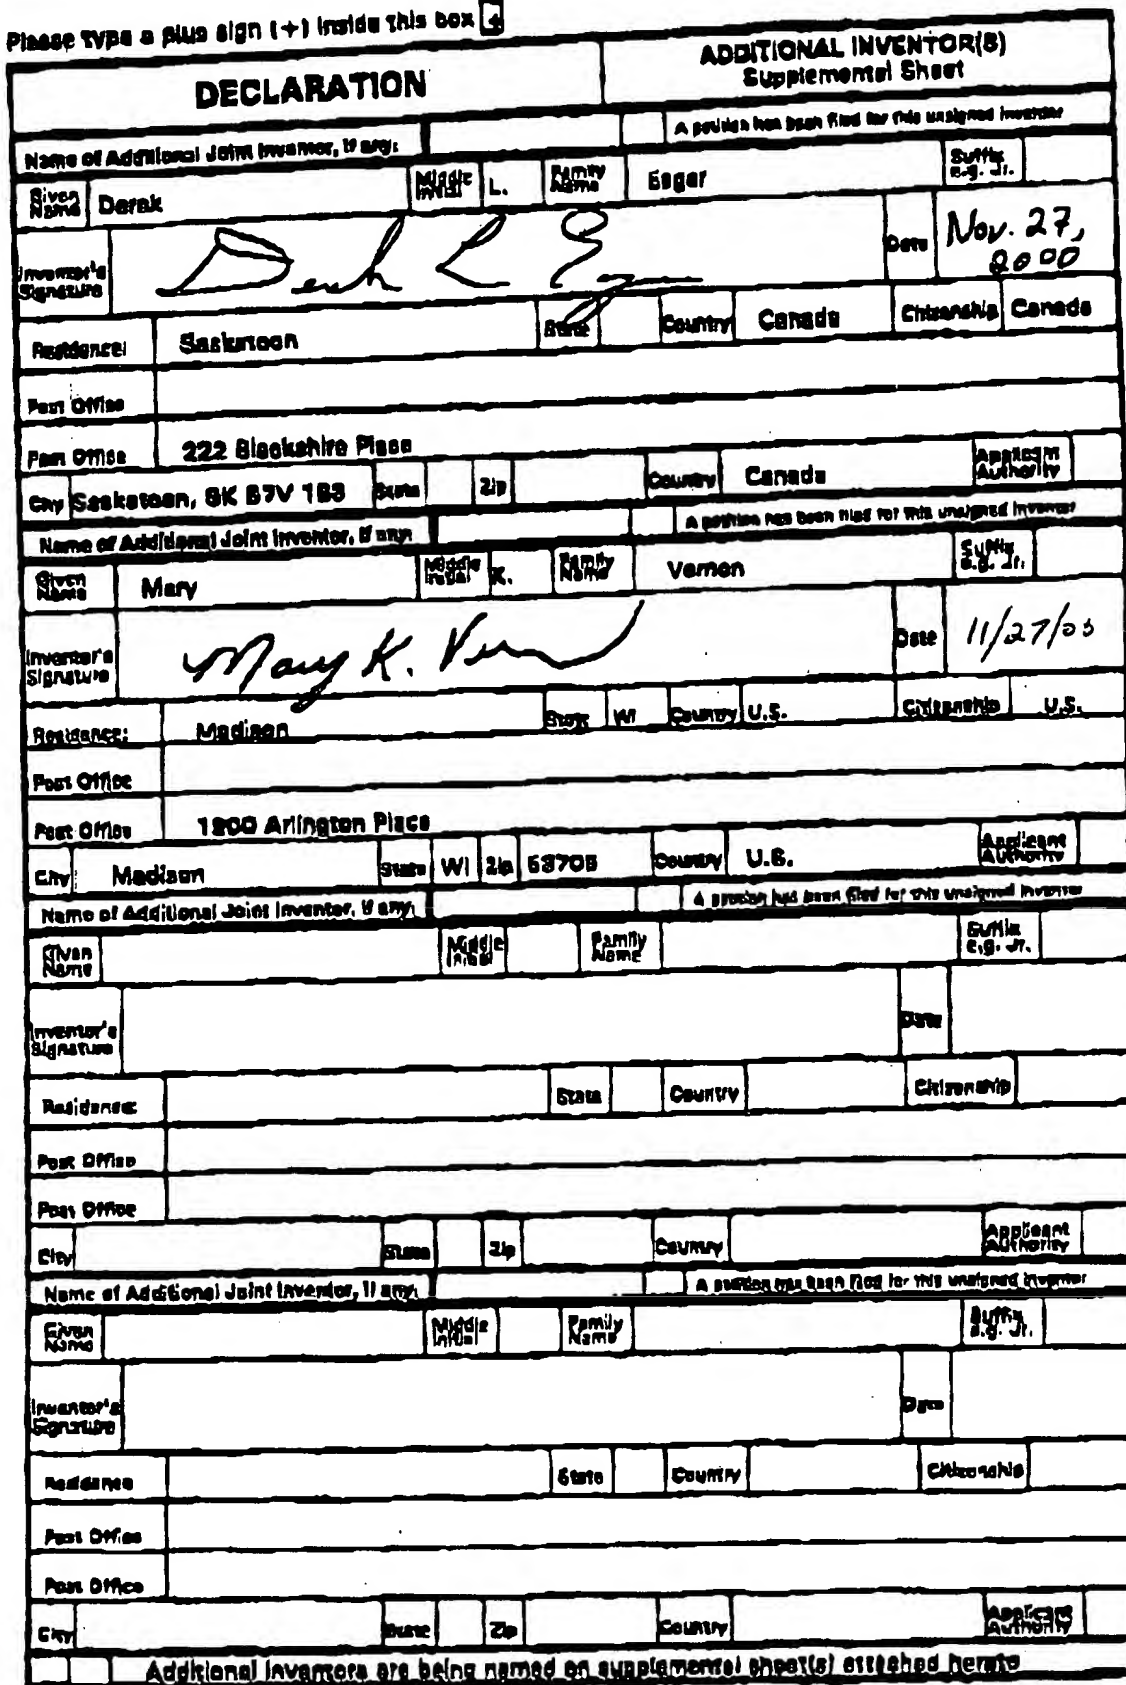 Please type a plus sign (+) inside this box +
DECLARATION
ADDITIONAL INVENTOR(S)
Supplemental Sheet
Name of Additional Joint Inventor, if any:
A petition has been filed for this unsigned inventor
Given Name Derek Middle Initial L. Family Name Eager Suffix e.g. Jr.
Inventor's Signature Derek L Eager Date Nov. 27, 2000
Residence: Saskatoon State Country Canada Citizenship Canada
Post Office
Post Office 222 Blackshire Place
City Saskatoon, SK S7V 1B3 State Zip Country Canada Applicant Authority
Name of Additional Joint Inventor, if any: A petition has been filed for this unsigned inventor
Given Name Mary Middle Initial K. Family Name Vernon Suffix e.g. Jr.
Inventor's Signature Mary K. Vernon Date 11/27/00
Residence: Madison State WI Country U.S. Citizenship U.S.
Post Office
Post Office 1900 Arlington Place
City Madison State WI Zip Country U.S. Applicant Authority
Name of Additional Joint Inventor, if any: A petition has been filed for this unsigned inventor
Given Name Middle Initial Family Name Suffix e.g. Jr.
Inventor's Signature Date
Residence: State Country Citizenship
Post Office
Post Office
City State Zip Country Applicant Authority
Name of Additional Joint Inventor, if any: A petition has been filed for this unsigned inventor
Given Name Middle Initial Family Name Suffix e.g. Jr.
Inventor's Signature Date
Residence State Country Citizenship
Post Office
Post Office
City State Zip Country Applicant Authority
Additional inventors are being named on supplemental sheet(s) attached hereto